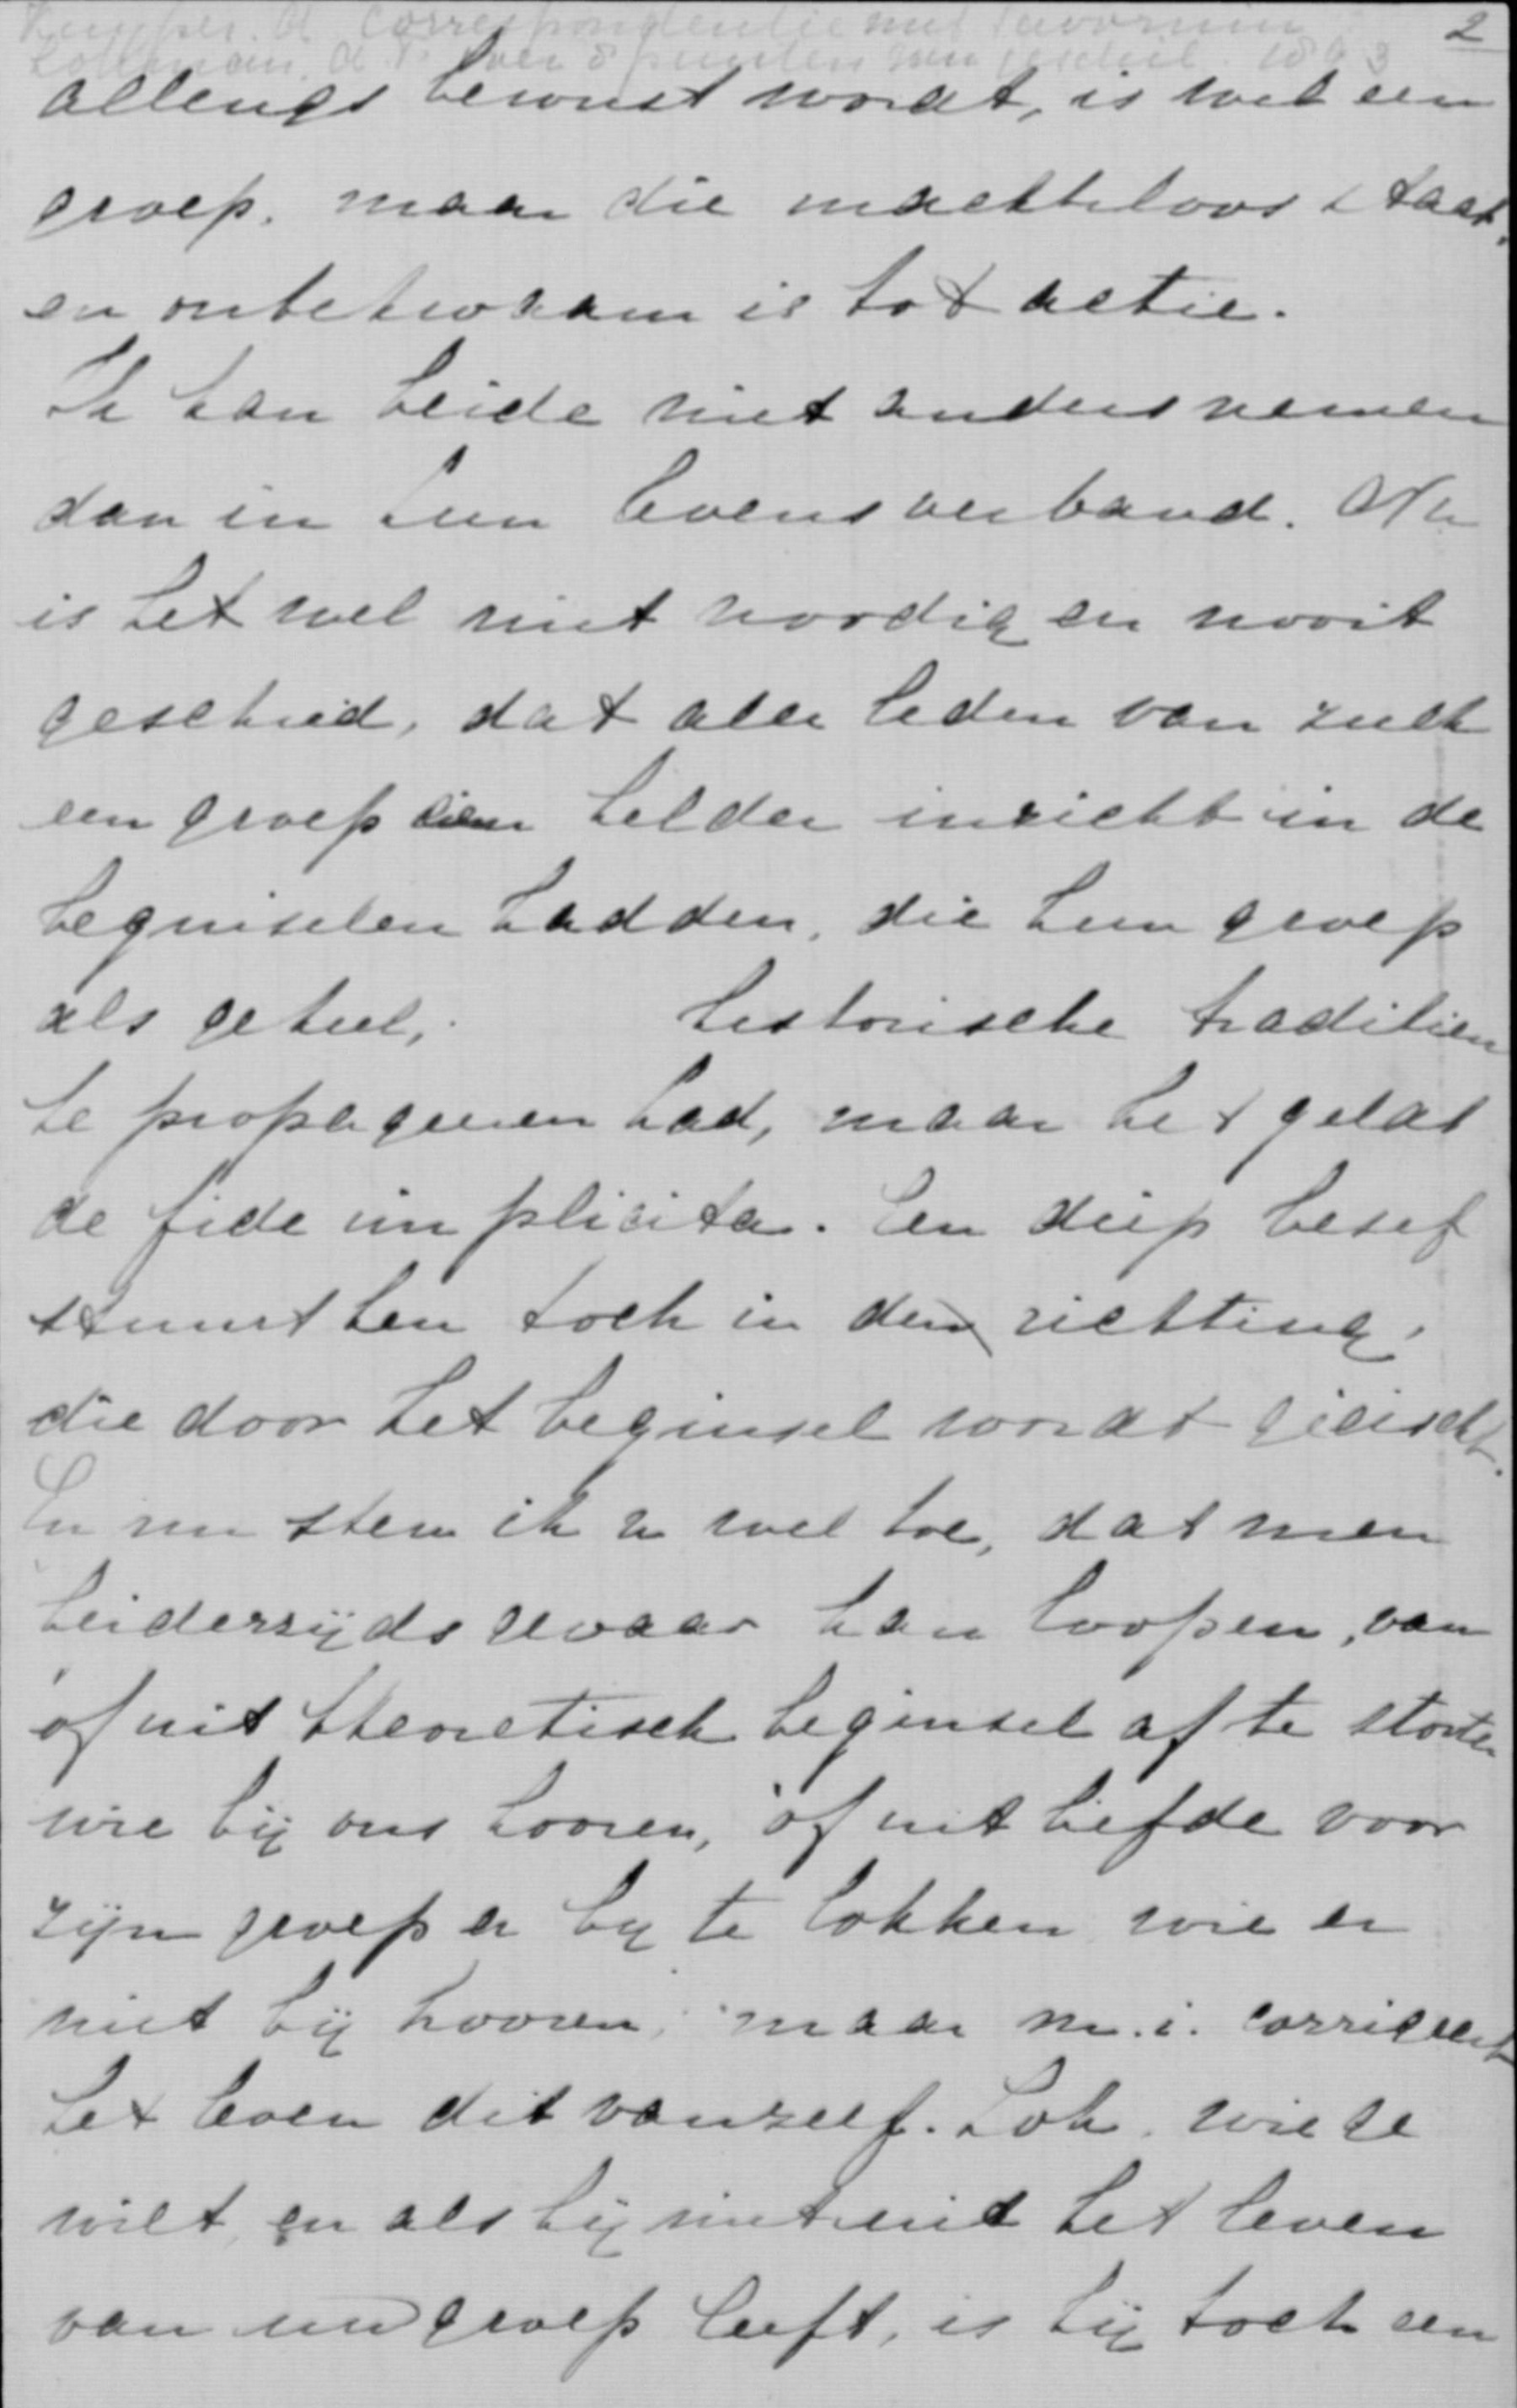 Kuyper. A Correspondentie met Savornin 2
Lohman. A F. over 8 punten van geschil. 1893
allengs bewust wordt, is wel een
groep, maar die machteloos staat,
en onbekwaam is tot actie.
Ik kan beide niet anders nemen
dan in hun levensverband. Nu
is het wel niet noodig en nooit
geschied, dat alle leden van zulk
een groep een helder inzicht in de
beginselen hadden, die hun groep
als geheel, historische traditien
te propageeren had, maar het geldt
de fide implicita. Een diep besef
stuurt hen toch in den richting,
die door het beginsel wordt geëischt.
En nu stem ik u wel toe, dat men
beiderzijds gevaar kan loopen, van
òf uit theoretisch beginsel af te stooten
wie bij ons hooren, òf uit liefde voor
zijn groep er bij te lokken wie er
niet bij hooren, maar m.i. corrigeert
het leven dit vanzelf. Lok wie ge
wilt, en als hij niet uit het leven
van uw groep leeft, is hij toch een